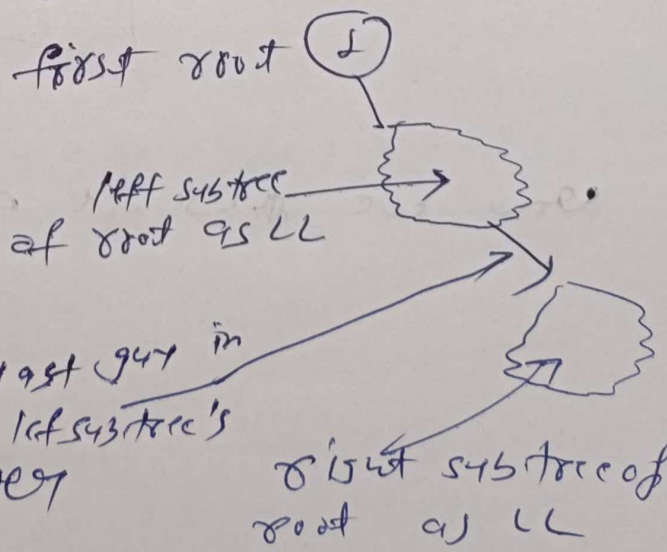 first root 1
left subtree
of root as LL
last guy in
left subtree's
right subtree of
root as LL